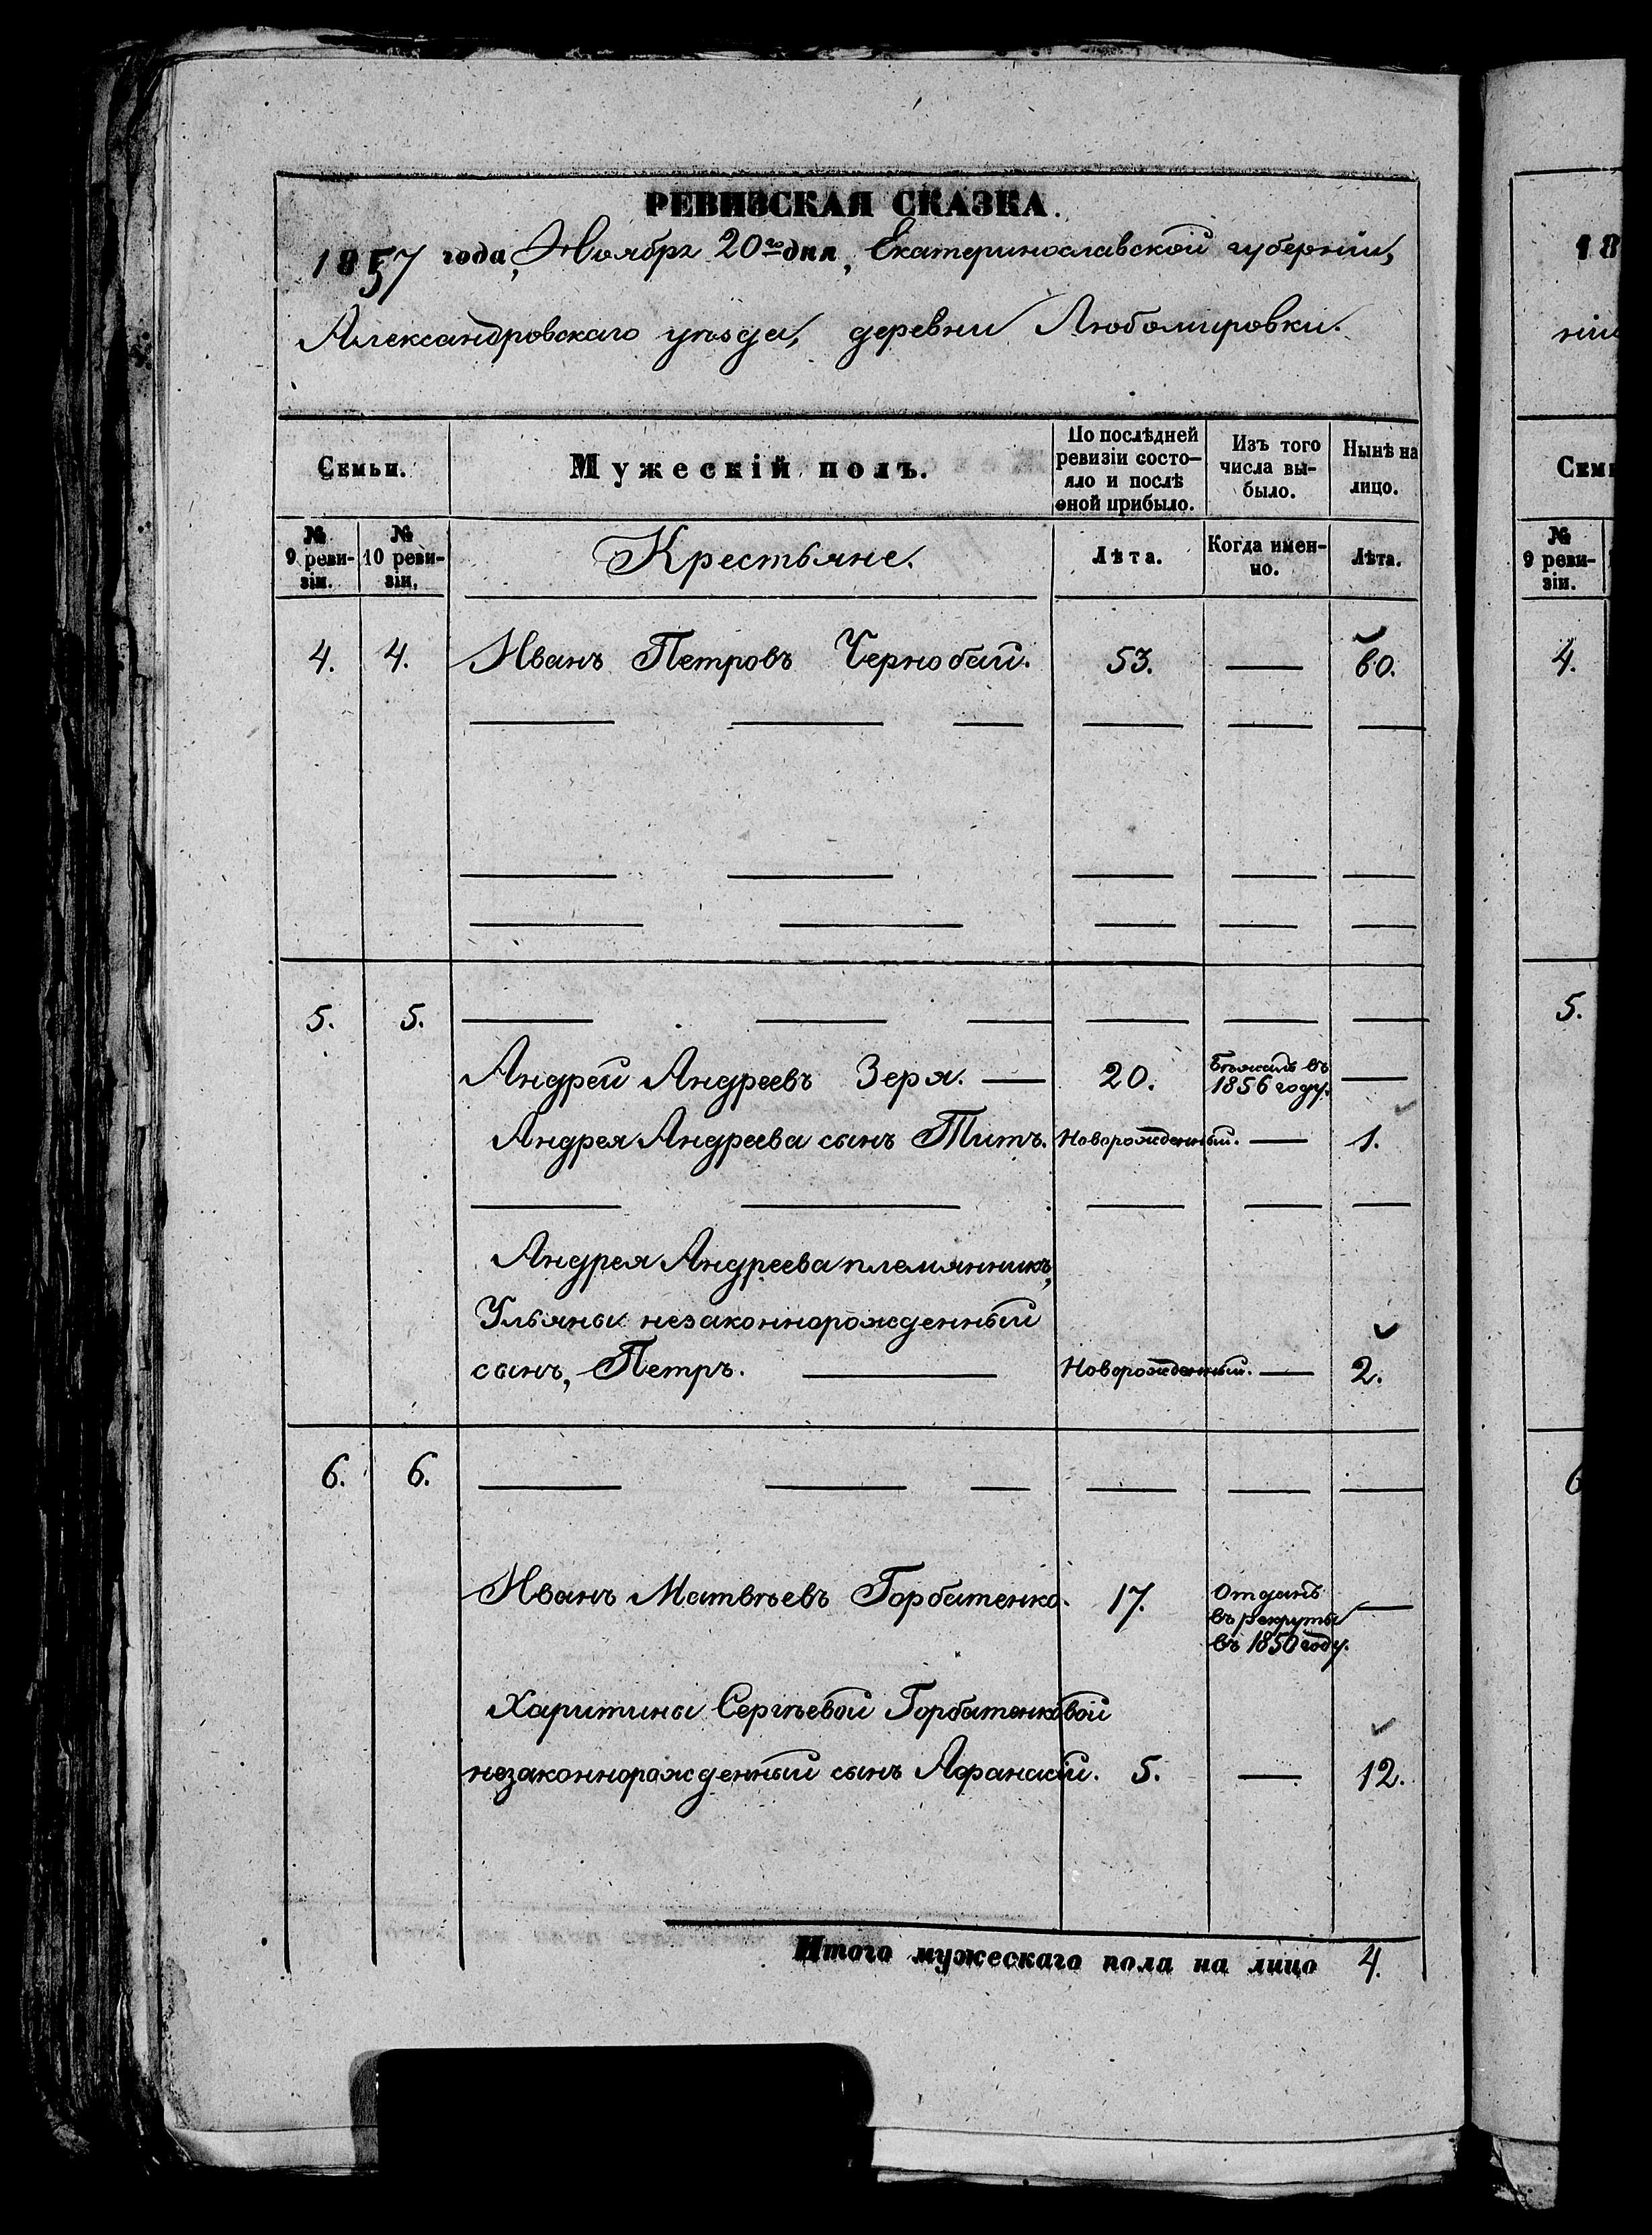 РЕВИЗСКАЯ СКАЗКА.
1857 года, Ноября 20го дня, Екатеринославской губерніи,
Александровскаго уѣзда, деревни Любомировки.
Семьи.
Мужескій полъ.
По послѣдней ревизіи состо-
яло и послѣ оной прибыло.
Изъ того числа вы-
было.
Нынѣ на лицо.
№ 9 реви-
зіи.
№ 10 реви-
зіи.
Крестьяне.
Лѣта.
Когда имен-
но.
Лѣта.
4. 4. Иванъ Петровъ Чернобай. 53. — 60.
5. 5.
Андрей Андреевъ Зеря. — 20. Бѣжалъ въ 1856 году. —
Андрея Андреева сынъ Титъ. Новорожденный. — 1.
Андрея Андреева племянникъ,
Ульяны незаконнорожденный
сынъ, Петръ. — Новорожденный. — 2.
6. 6.
Иванъ Матвѣевъ Горбатенко. 17. Отданъ въ рекруты въ 1850 году. —
Харитины Сергѣевой Горбатенковой
незаконнорожденный сынъ Афанасій. 5. — 12.
Итого мужескаго пола на лицо 4.
18
ніи
Семь
№
9 реви-
зіи.
4.
5.
6